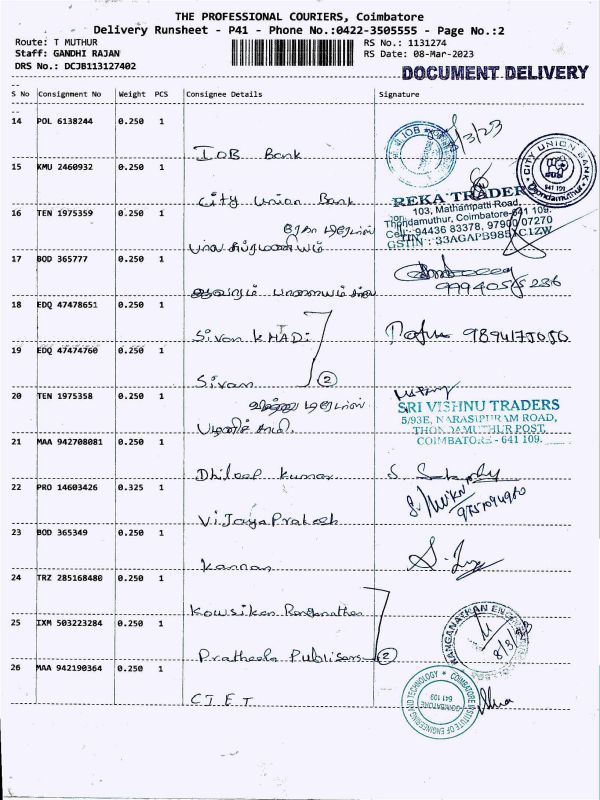 THE PROFESSIONAL COURIERS, Coimbatore
Delivery Runsheet - P41 - Phone No.:0422-3505555 - Page No.:2
Route: T MUTHUR
RS No.: 1131274
Staff: GANDHI RAJAN
RS Date: 08-Mar-2023
DRS No.: DCJB113127402
DOCUMENT DELIVERY
S No Consignment No Weight PCS Consignee Details Signature
14 POL 6138244 0.250 1
IOB Bank
IOB
8/3/23
15 KMU 2460932 0.250 1
City Union Bank
CITY UNION BANK
641 109
Thondamuthur
16 TEN 1975359 0.250 1
ரேகா டிரேடர்ஸ்
பாலசுப்ரமணியம்
REKA TRADERS
103, Mathampatti Road,
Thondamuthur, Coimbatore-641 109.
Cell : 94436 83378, 97900 07270
GSTIN : 33AGAPB985
C1ZW
17 BOD 365777 0.250 1
18 EDQ 47478651 0.250 1
Sivan KHADI
19 EDQ 47474760 0.250 1
Sivan
2
20 TEN 1975358 0.250 1
டிரேடர்ஸ்
பழனிச்சாமி
SRI VISHNU TRADERS
5/93E, NARASIPURAM ROAD,
THONDAMUTHUR POST,
COIMBATORE - 641 109.
21 MAA 942708081 0.250 1
Dhileep Kumar
22 PRO 14603426 0.325 1
VijayaPrakash
23 BOD 365349 0.250 1
Kannan
24 TRZ 285168480 0.250 1
Kowsikan Ranganathan
25 IXM 503223284 0.250 1
Pratheela Publisars
2
RANGANATHAN
8/3/23
26 MAA 942190364 0.250 1
CIET
COIMBATORE INSTITUTE OF ENGINEERING AND TECHNOLOGY
COIMBATORE
641 109